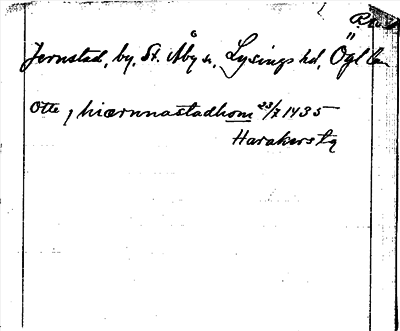 Jernstad, by, St. Åby sn, Lysings hd, Ögl län
Otte j hiærnnastadhom 23/7 1435
Harakers tg